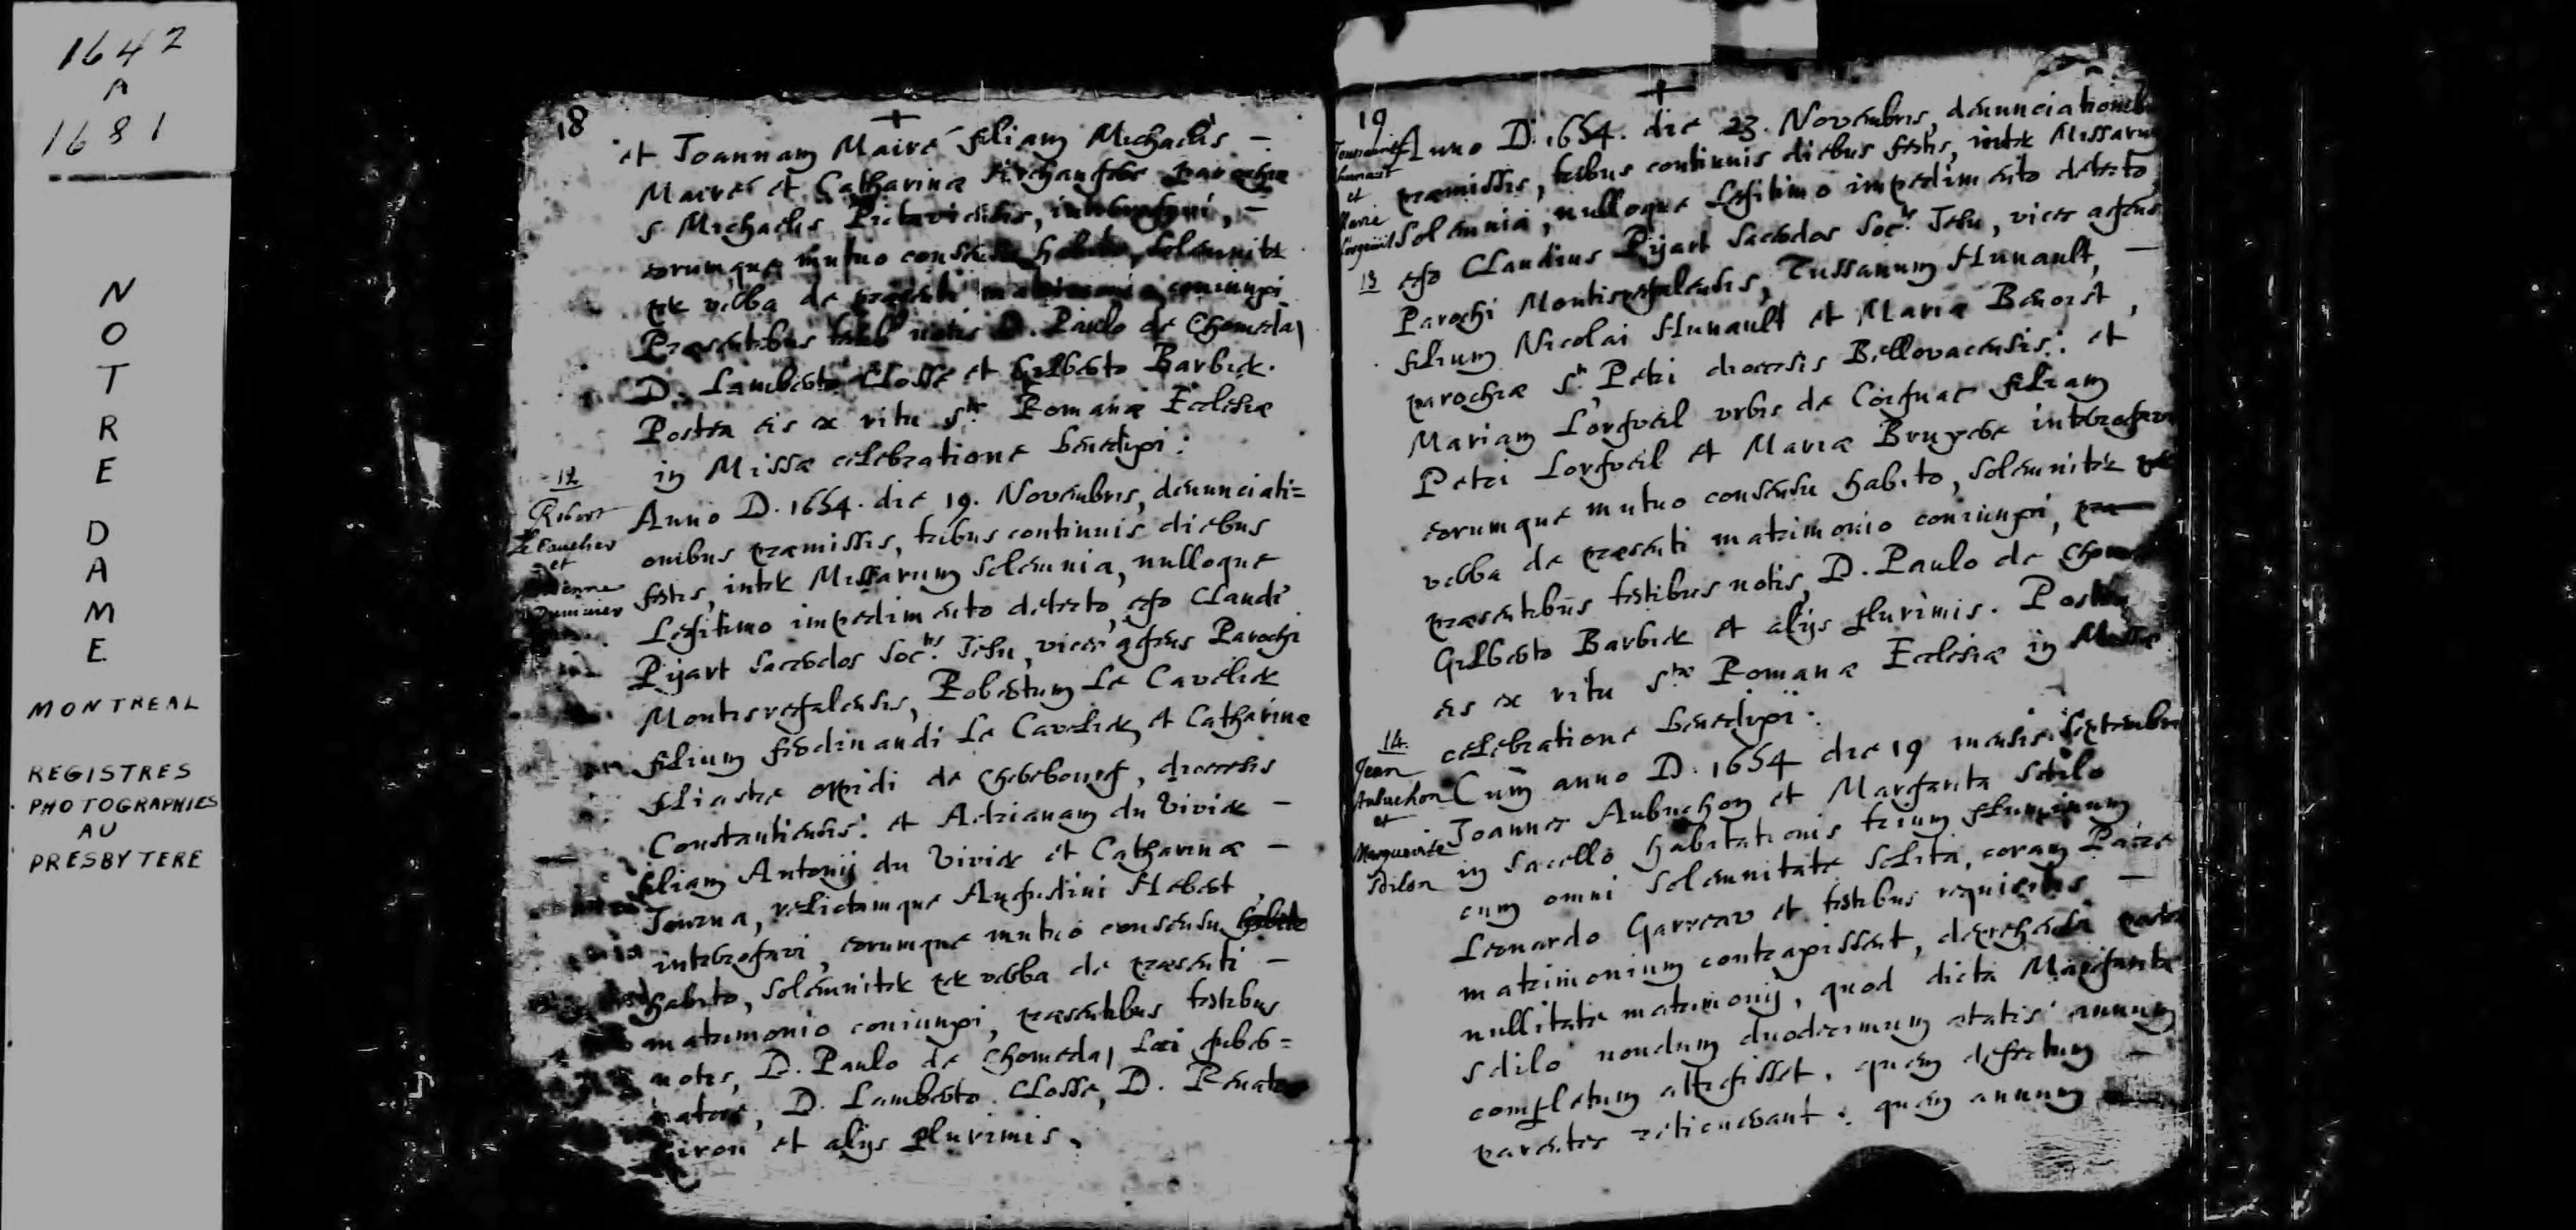 1642
A
1681
N
O
T
R
E
D
A
M
E
MONTREAL
REGISTRES
PHOTOGRAPHIES
AU
PRESBYTERE
18
et Joannam Mairé filiam Michaelis -
Mairé et Catharinæ Archangebe parochiæ
S. Michaelis Pictaviensis, interrogavi, -
eorumque mutuo consensu habito, solemniter
per verba de præsenti matrimonio coniunxi
Præsentibus testib notis D. Paulo de Chomeda,
D. Lamberto Closse et Gilberto Barbier.
Postea eis ex ritu Stæ Romanæ Ecclesiæ
in Missæ celebratione benedixi:
12
Robert
Le Cauelier
et
Adrienne
Duuiuier
Anno D. 1654. die 19. Novembris, denunciati=
onibus præmissis, tribus continuis diebus
festis, inter Missarum solemnia, nulloque
Legitimo impedimento detecto, ego Claudi9
Pijart sacerdos Soctis Jesu, vices agens Parochi
Montisregalensis, Robertum Le Cavelier
filium ferdinandi Le Cavelier et Catharinæ
fliastre oppidi de Cherebourg, diœcesis
Constantiensis: et Adrianam du Vivier -
filiam Antonij du Vivier et Catharinæ -
Journa, relictamque Augustini Hebert,
interrogavi, eorumque mutuo consensu
habito, solemniter per verba de præsenti -
matrimonio coniunxi, præsentibus testibus
notis, D. Paulo de Chomeda, Loci guber=
natore, D. Lamberto Closse, D. Renato
et alijs plurimis.
19
Toussaint
hunault
et
Marie
Lorgueuil
13
Anno D. 1654. die 23. Novembris, denunciationib
præmissis, tribus continuis diebus festis, inter Missarum
Solemnia, nulloque Legitimo impedimento detecto,
ego Claudius Pijart Sacerdos Soctis Jesu, vices agens
Parochi Montisregalensis, Tussanum Hunault, -
filium Nicolai Hunault et Mariæ Benoist,
parochiæ Sti Petri diœcesis Bellovacensis: et
Mariam Lorgveil urbis de Coignac filiam
Petri Lorgveil et Mariæ Bruyere interrogavi
eorumque mutuo consensu habito, solemniter per
verba de præsenti matrimonio coniunxi, præ
præsentibus testibus notis, D. Paulo de Chomeda
Gilberto Barbier et alijs plurimis. Postea
eis ex ritu Stæ Romanæ Ecclesiæ in Missæ
celebratione benedixi.
14.
Jean
Aubuchon
et
Marguerite
Sedilon
Cum anno D. 1654 die 19 mensis Septembris
Joannes Aubuchon et Margarita Sedilo
in Sacello habitationis trium fluminum
cum omni solemnitate solita, coram Patre
Leonardo Garreau et testibus requisitis -
matrimonium contraxissent, deprehensa postea
nullitate matrimonij, quod dicta Margarita
Sedilo nondum duodecimum ætatis annum
completum attigisset, quem defectum -
parentes reticuerant: quem annum